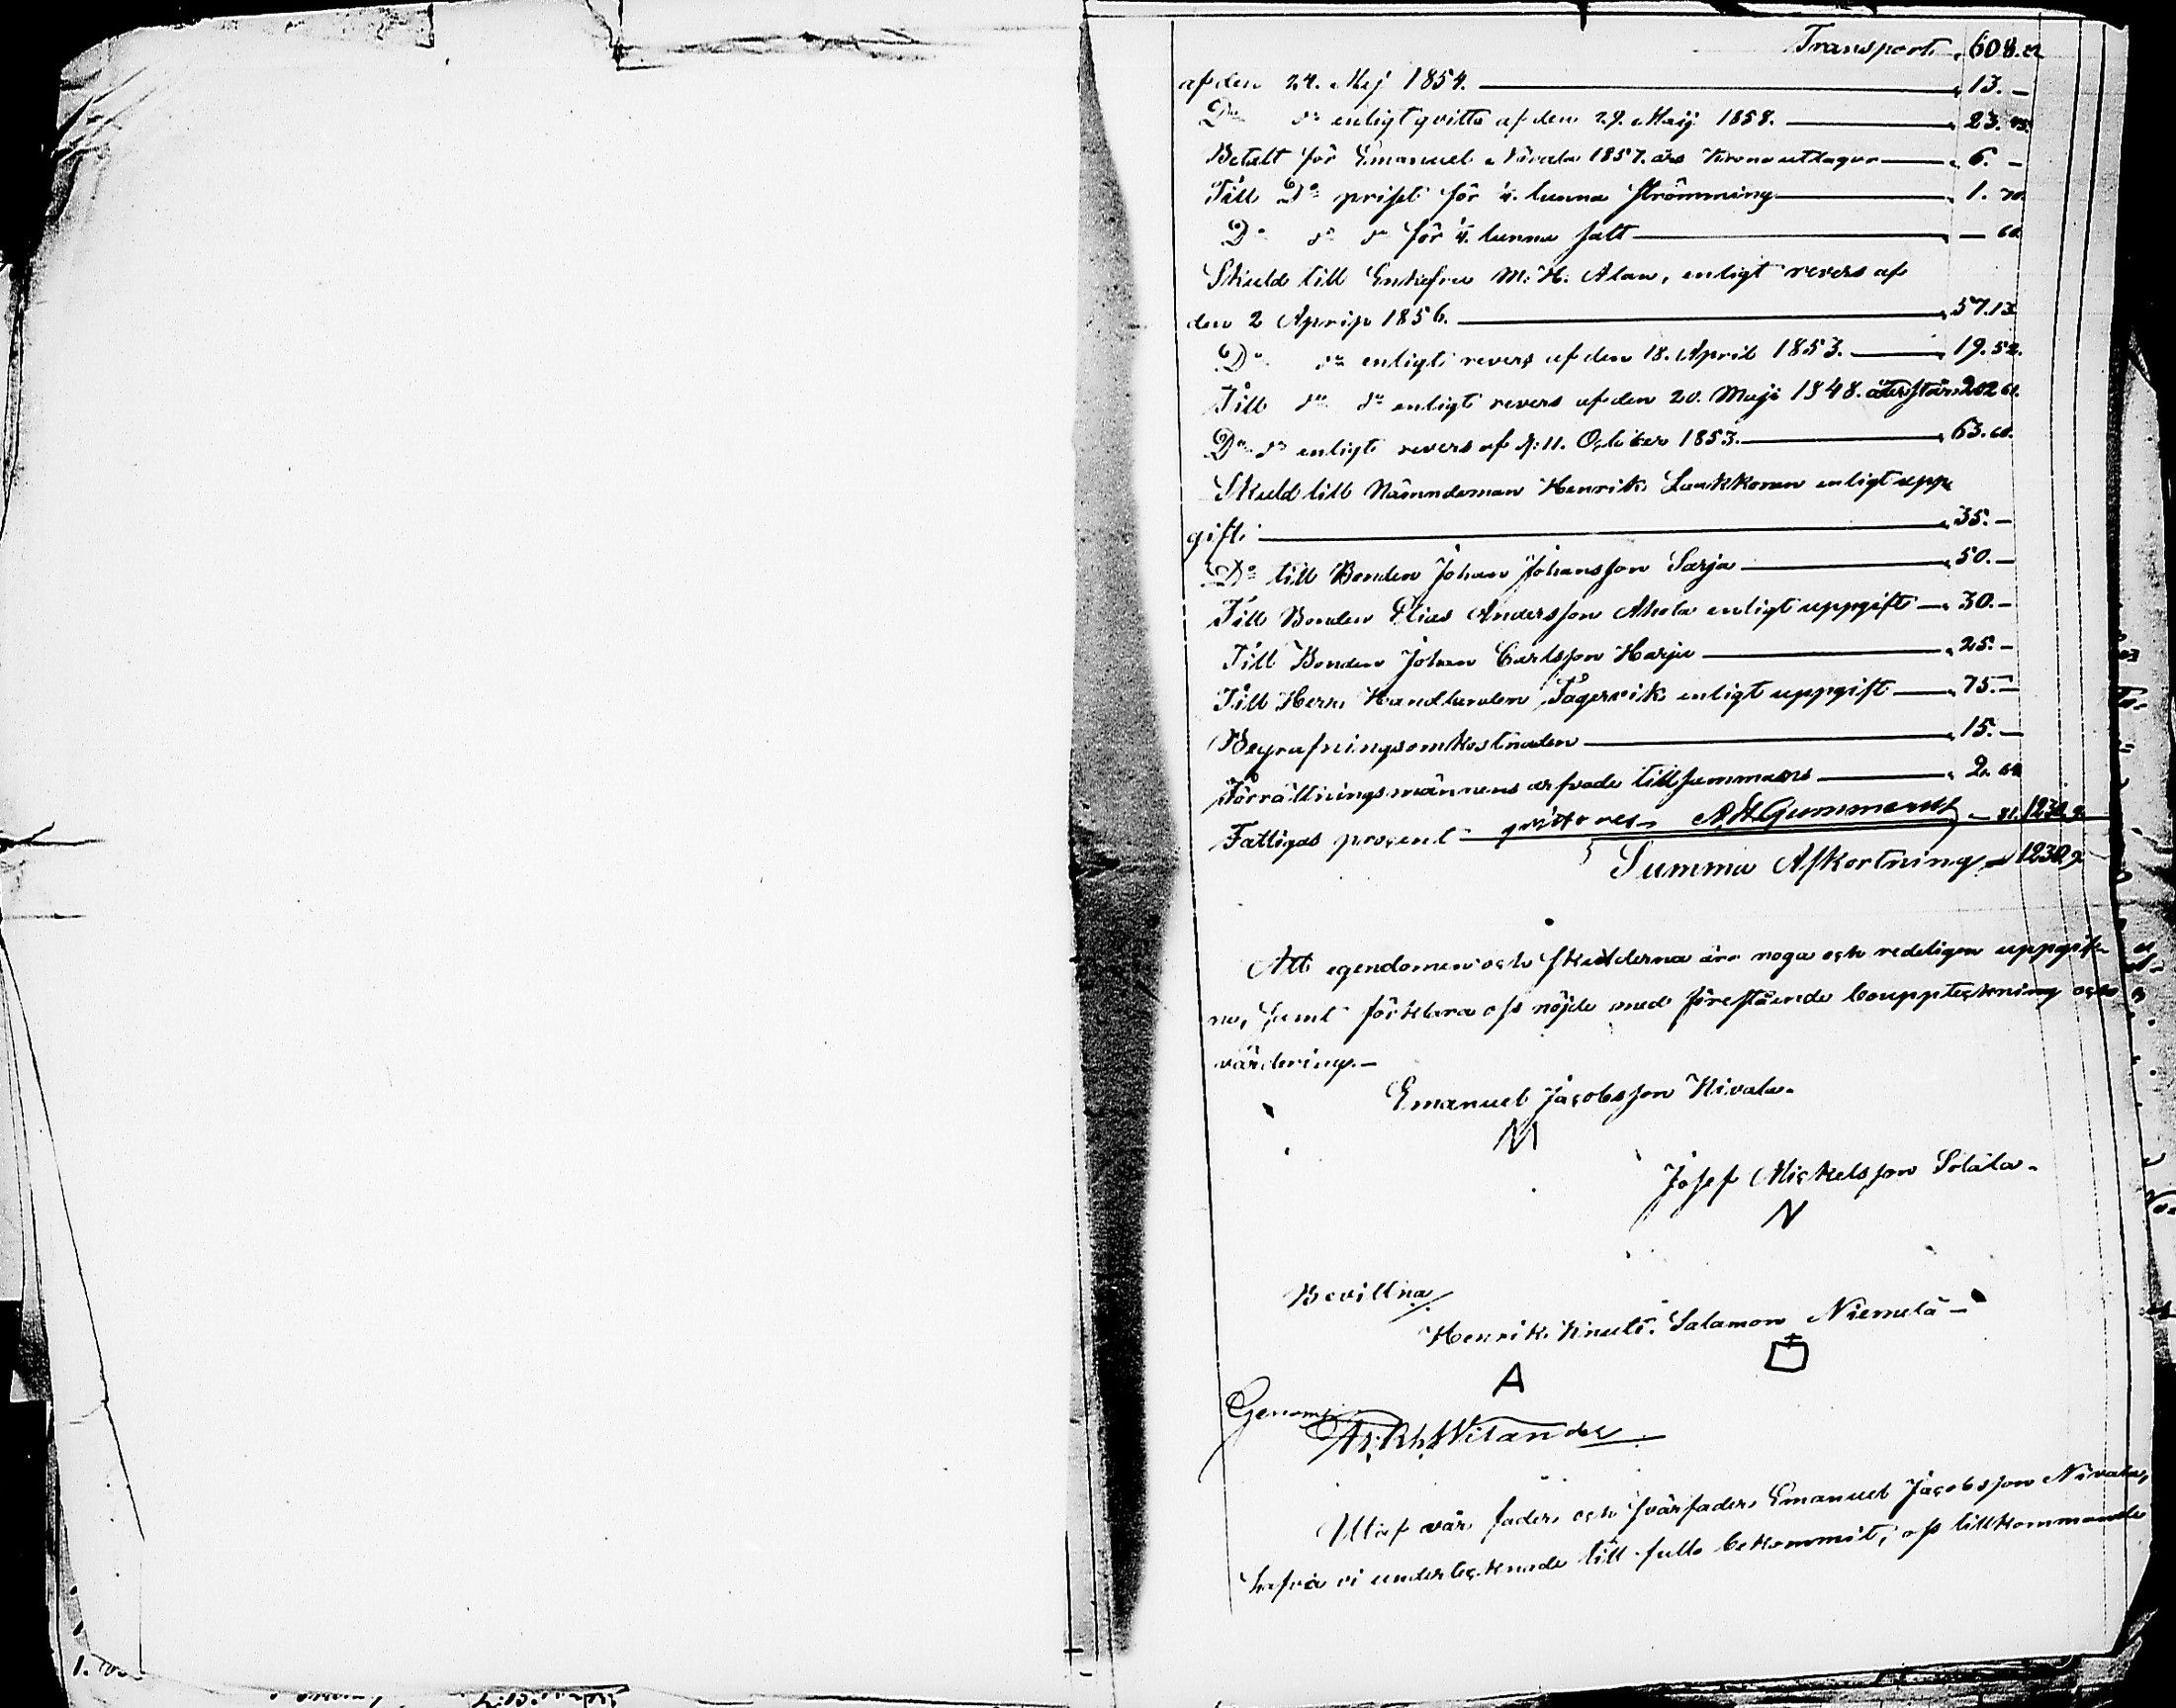 Transport 608.
af den 24. Maj 1854. 13. –
Do do enligt qvitto af den 29. Maij 1858. 23.
Betalt för Emanuel Nivala 1857. års Krono utlagor 6. –
Till Do prist för ¼. tunna strömming 1. 70.
Do do do för ¼. tunna salt — 60.
Skuld till Enkefru M: H. Alan, enligt revers af
den 2 April 1856. 57.13.
Do do enligt revers af den 18. April 1853. 19. 52.
Till do do enligt revers af den 20. Maji 1848. återstår 202 61.
Do do enligt revers af d: 11. October 1853. 63. 60.
Skuld till Nämndeman Henrik Laukkonen enligt upp
gift. 35. –
Do till Bonden Johan Johansson Sarja 50. –
Till Bonden Elias Andersson Ahola enligt uppgift 30. –
Till Bonden Johan Carlsson Harju 25. –
Till Herr Handlanden Fagervik enligt uppgift 75. –
Begrafningsomkostnaden 15. –
Förrättningsmännens arfvode tillsammans 2.
Fattigas procent qvitteres 1230.
Summa Afkortning 1230
Att egendomen och skulderna äro noga och redeligen uppgif
ne, samt förklara oss nöjde med förestående bouppteckning och
värdering. –
Emanuel Jacobsson Nivala.
M
Josef Mickelsson Sotala.
N
Bevittna
Henrik Knuti. Salamon Niemelä –
A
Genom
Witander
Utaf vår fader och svärfader Emanuel Jacobsson Nivala,
hafva vi undertecknade till fullo bekommit, oss tillkommande